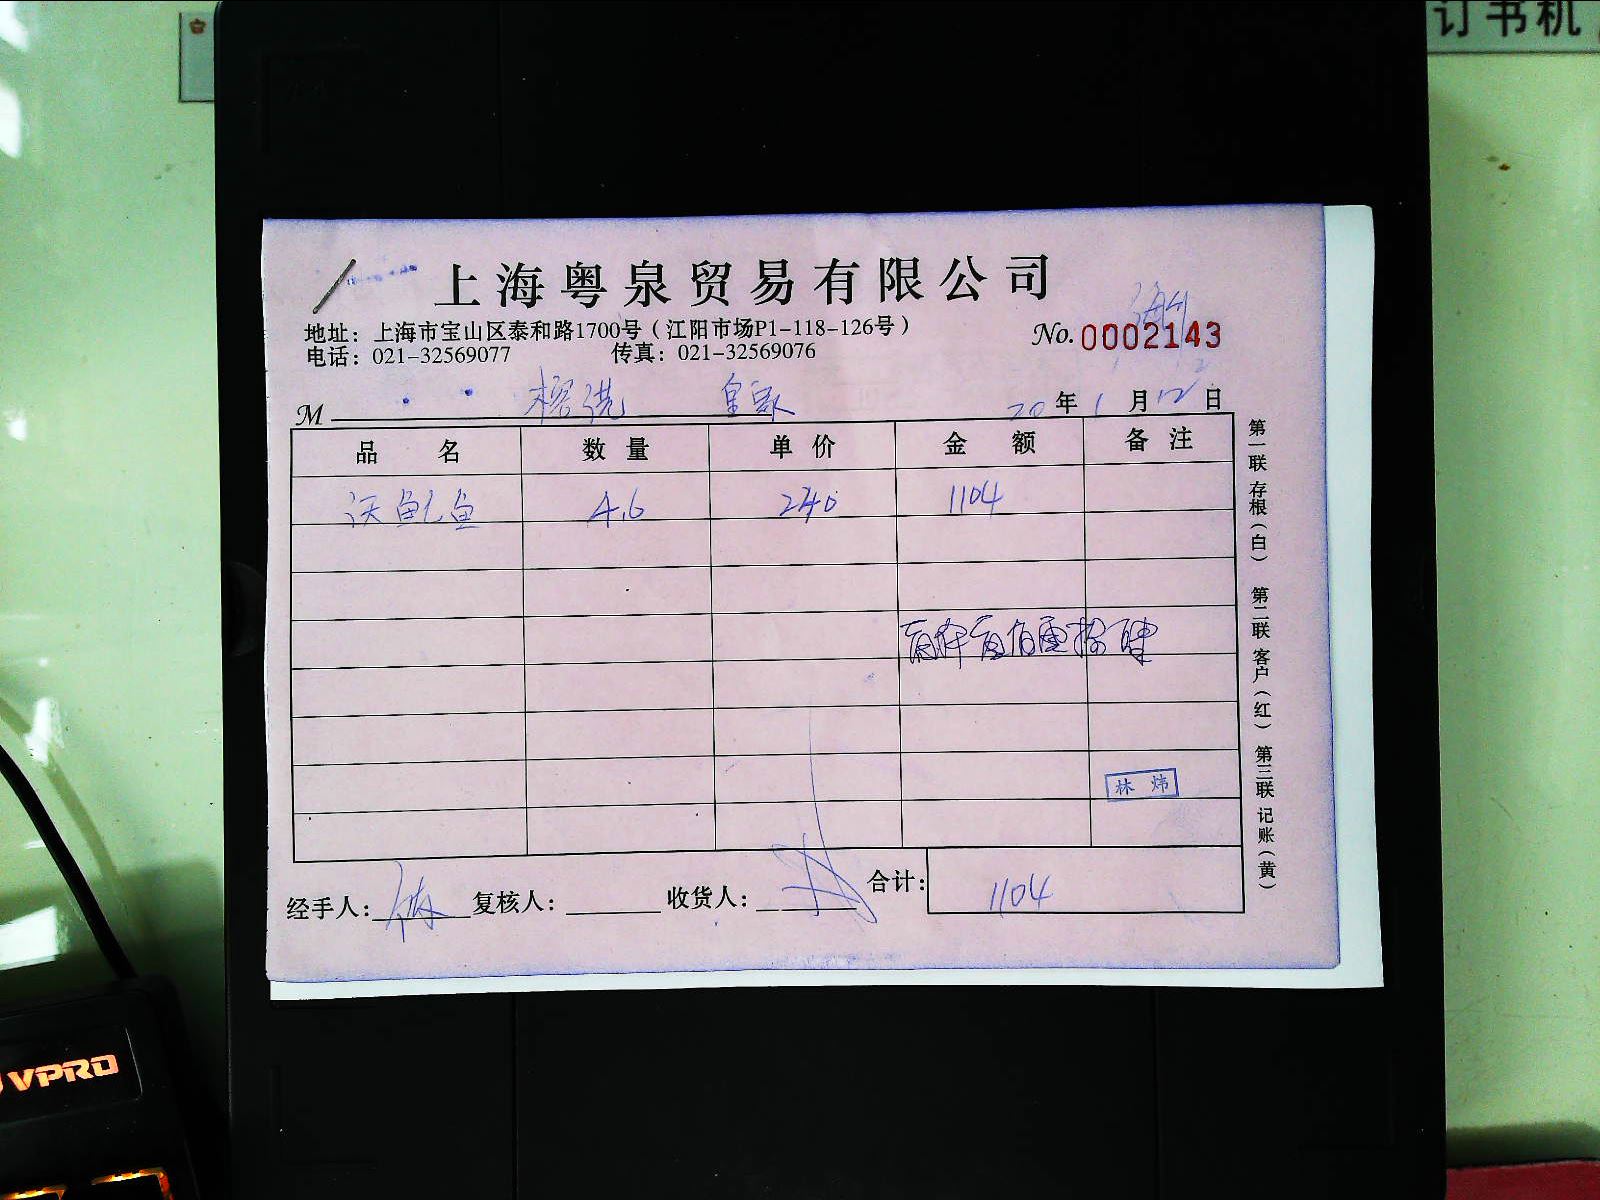 订书机
上海粤泉贸易有限公司
地址：上海市宝山区泰和路1700号（江阳市场P1-118-126号）
No.0002143
电话：021-32569077 传真：021-32569076
M
20年1月12日
品名 数量 单价 金额 备注
鱼 4.6 240 1104
林炜
经手人： 复核人： 收货人： 合计：1104
第一联存根（白） 第二联客户（红） 第三联记账（黄）
VPRO